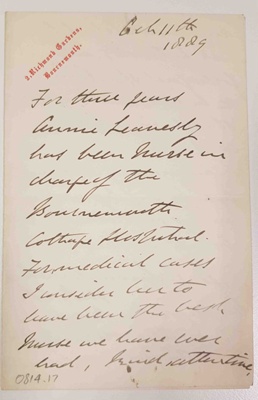 2, Richmond Gardens,
Bournemouth.
Feb 11th
1889
For three years
Annie
has been Nurse in
charge of the
Bournemouth
Cottage Hospital.
For medical cases
I consider her to
have been the best
Nurse we have ever
had, kind, attentive,
0814.17